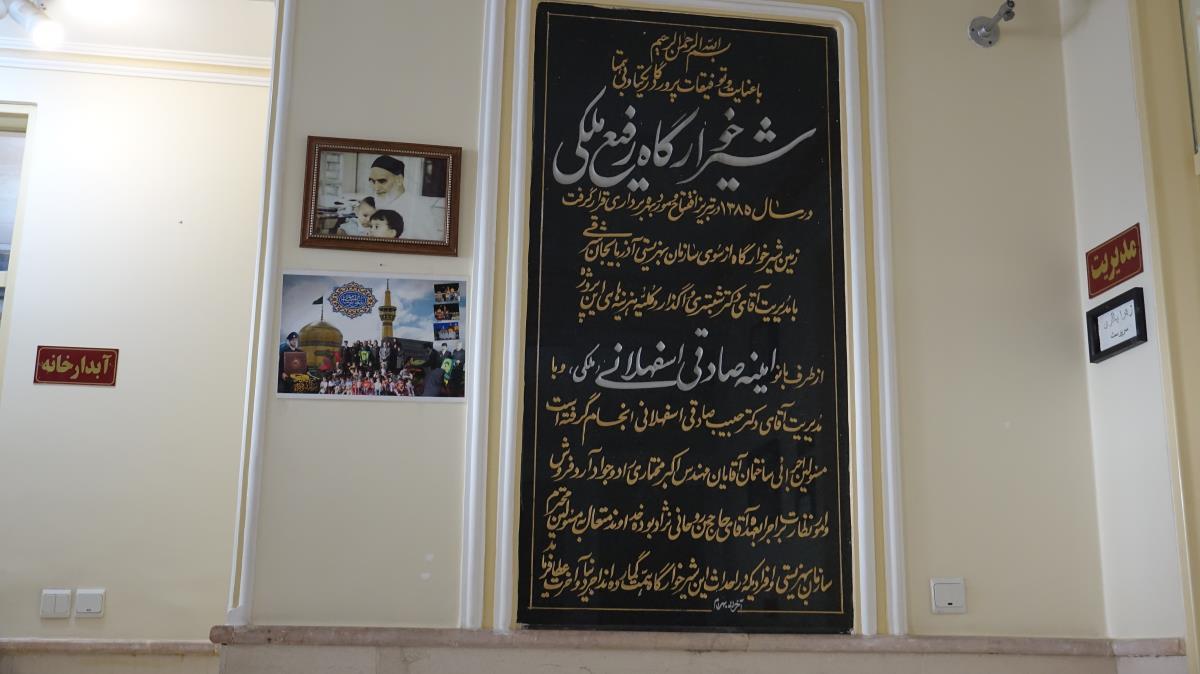 بسم الله الرحمن الرحیم
با عنایت و توفیقات پروردگار یکتا و بی همتا
شیرخوارگاه رفیع ملکی
در سال ۱۳۸۵ در تبریز افتتاح و مورد بهره برداری قرار گرفت
زمین شیرخوارگاه از سوی سازمان بهزیستی آذربایجان شرقی
با مدیریت آقای دکتر شبستری واگذار و کلیه هزینه های این پروژه
از طرف بانو امینه صادقی اسفهلانی (ملکی)، و با
مدیریت آقای دکتر حبیب صادقی اسفهلانی انجام گرفته است
مسئولین اجرائی ساختمان آقایان مهندس اکبر مختاری راد و جواد آردفروش
و امور نظارت بر اجرا بعهده آقای حاج حسن روحانی نژاد بوده خداوند متعال به مسئولین محترم
سازمان بهزیستی و افرادیکه در احداث این شیرخوارگاه همت گمارده اند اجر دنیا و آخرت عطا فرماید
آبدارخانه
مدیریت